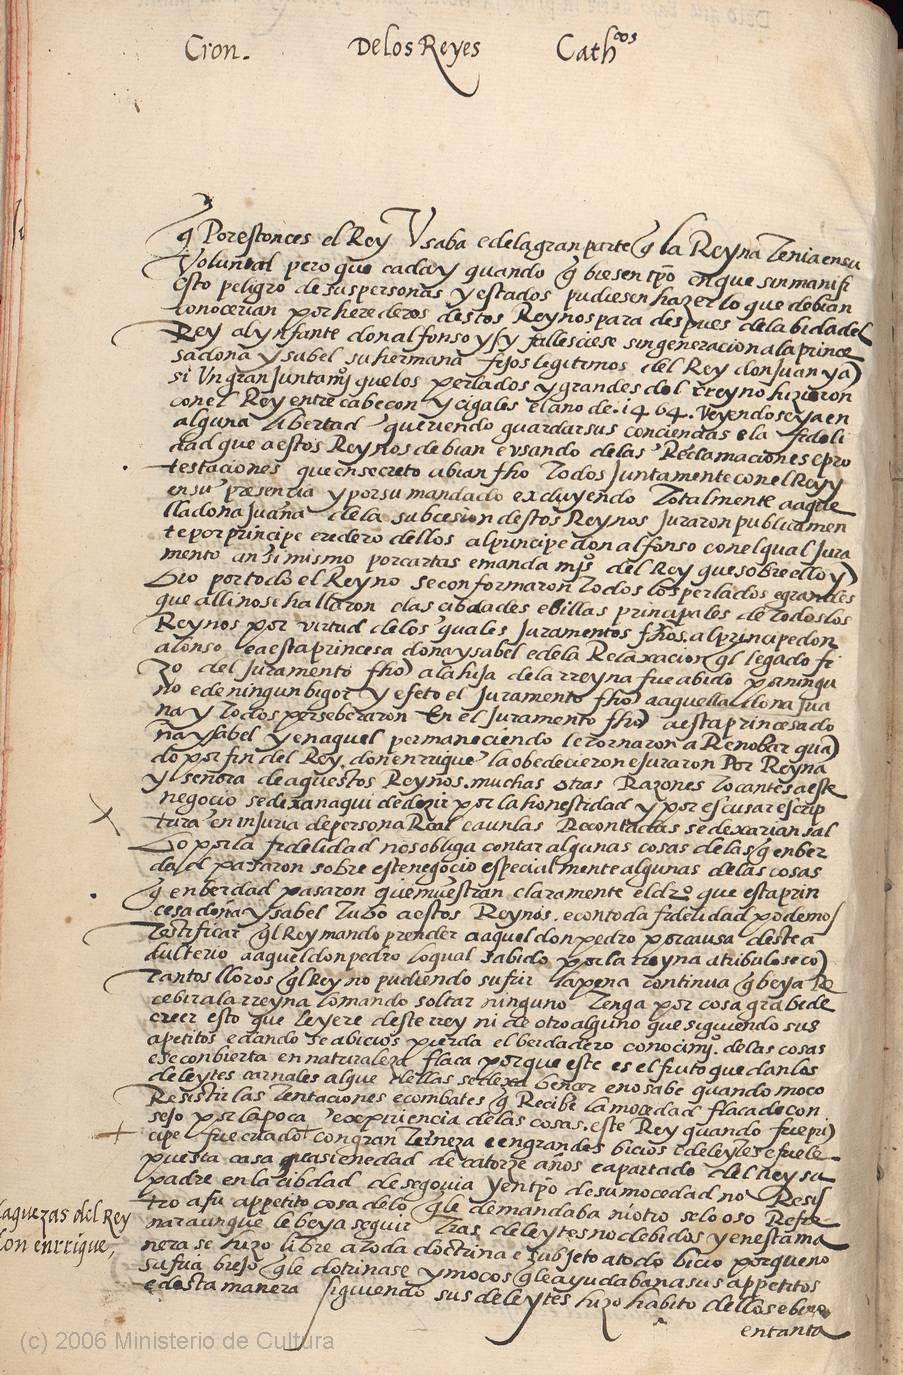 Cron. De los Reyes Cathcos
q Por estonces el Rey Usaba e de la gran parte q la Reyna Tenia en su
Voluntad pero que cada y quando q biesen tpo en que sin manifi
esto peligro de sus personas y estados pudiesen hazer lo que debian
conocerian por herederos destos Reynos para despues de la bida del
Rey al ynfante don alfonso y sy fallesciese sin generacion a la prince
sa dona ysabel su hermana fijos legitimos del Rey don Juan y a
si Un gran Juntamjº que los perlados y grandes del rreyno hizieron
con el Rey entre cabecon y cigales el año de .1464. Veyendose ya en
alguna libertad queriendo guardar sus conciencias e la fideli
dad que a estos Reynos debian e usando de las Reclamaciones e pro
testaciones que en secreto abian fho Todos Juntamente con el Rey y
en su presencia y por su mandado excluyendo Totalmente a aque
lla doña Juana de la subcesion destos Reynos Juraron publicamen
te por principe eredero dellos al principe don alfonso con el qual Jura
mento ansimismo por cartas e mandamjºs del Rey que sobre ello y
bio por todo el Reyno se conformaron Todos los perlados e grandes
que alli no se hallaron e las cibdades e billas principales de todos los
Reynos por virtud de los quales Juramentos fhos al principe don
alonso e a esta princesa dona ysabel e de la Relaxacion ql legado fi
zo del Juramento fho a la hija de la rreyna fue abido por ningu
no e de ningun bigor y efeto el Juramento fho a aquella dona Jua
na y Todos perseberaron En el Juramento fho a esta princesa do
ña ysabel y en aquel permaneciendo le tornaron a Renobar qua
do por fin del Rey don enrrique la obedecieron e Juraron Por Reyna
y señora de aquestos Reynos. muchas otras Razones Tocantes a este
negocio se dexan aqui de dezir por la honestidad y por escusar escrip
tura en injuria de persona Real e aun las Recontadas se dexarian sal
bo por la fidelidad nos obliga contar algunas cosas de las q en ber
dad pasaron sobre este negocio especialmente algunas de las cosas
q en berdad pasaron que muestran claramente el drº que esta prin
cesa doña ysabel Tubo a estos Reynos. e con toda fidelidad podemos
Testificar ql Rey mando prender a aquel don pedro por causa deste a
dulterio a aquel don pedro lo qual sabido por la rreyna atribulose co
tantos lloros ql Rey no pudiendo sufrir la pena continua q beya Re
cebir a la rreyna lo mando soltar ninguno Tenga por cosa grabe de
creer esto que leyere deste rrey ni de otro alguno que siguiendo sus
apetitos e dando se a bicios pierda el berdadero conocimjº de las cosas
e se conbierta en naturaleza flaca porque este es el fruto que dan los
deleytes carnales al que dellas se dexa bencer e no sabe quando moco
Resistir las Tentaciones e combates q Recibe la mocedad flaca de con
sejo por la poca experiencia de las cosas. este Rey quando fue pri
cipe fue criado con gran terneza e en grandes bicios e deleytes e fuele
puesta casa quasi en edad de catorze años e apartado del Rey su
padre en la cibdad de segovia y en tpo de su mocedad no Resis
tro a su appetito cosa de lo q le demandaba ni otro selo oso Refre
nar aunque le beya seguir Tras deleytes no debidos y en esta ma
nera se hizo libre a toda doctrina e subjeto a todo bicio porque no
sufria biejo q le dotrinase y mocos q le ayudaban a sus appetitos
e desta manera siguiendo sus deleytes hizo habito dellos e bino
en tanta
laquezas del Rey
don enrrique,
(c) 2006 Ministerio de Cultura